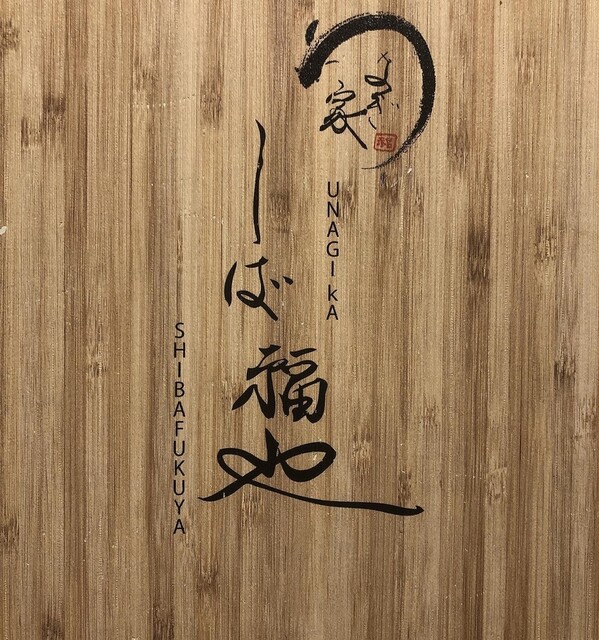 うなぎ家
福
UNAGI kA
しば福や
SHIBAFUKUYA